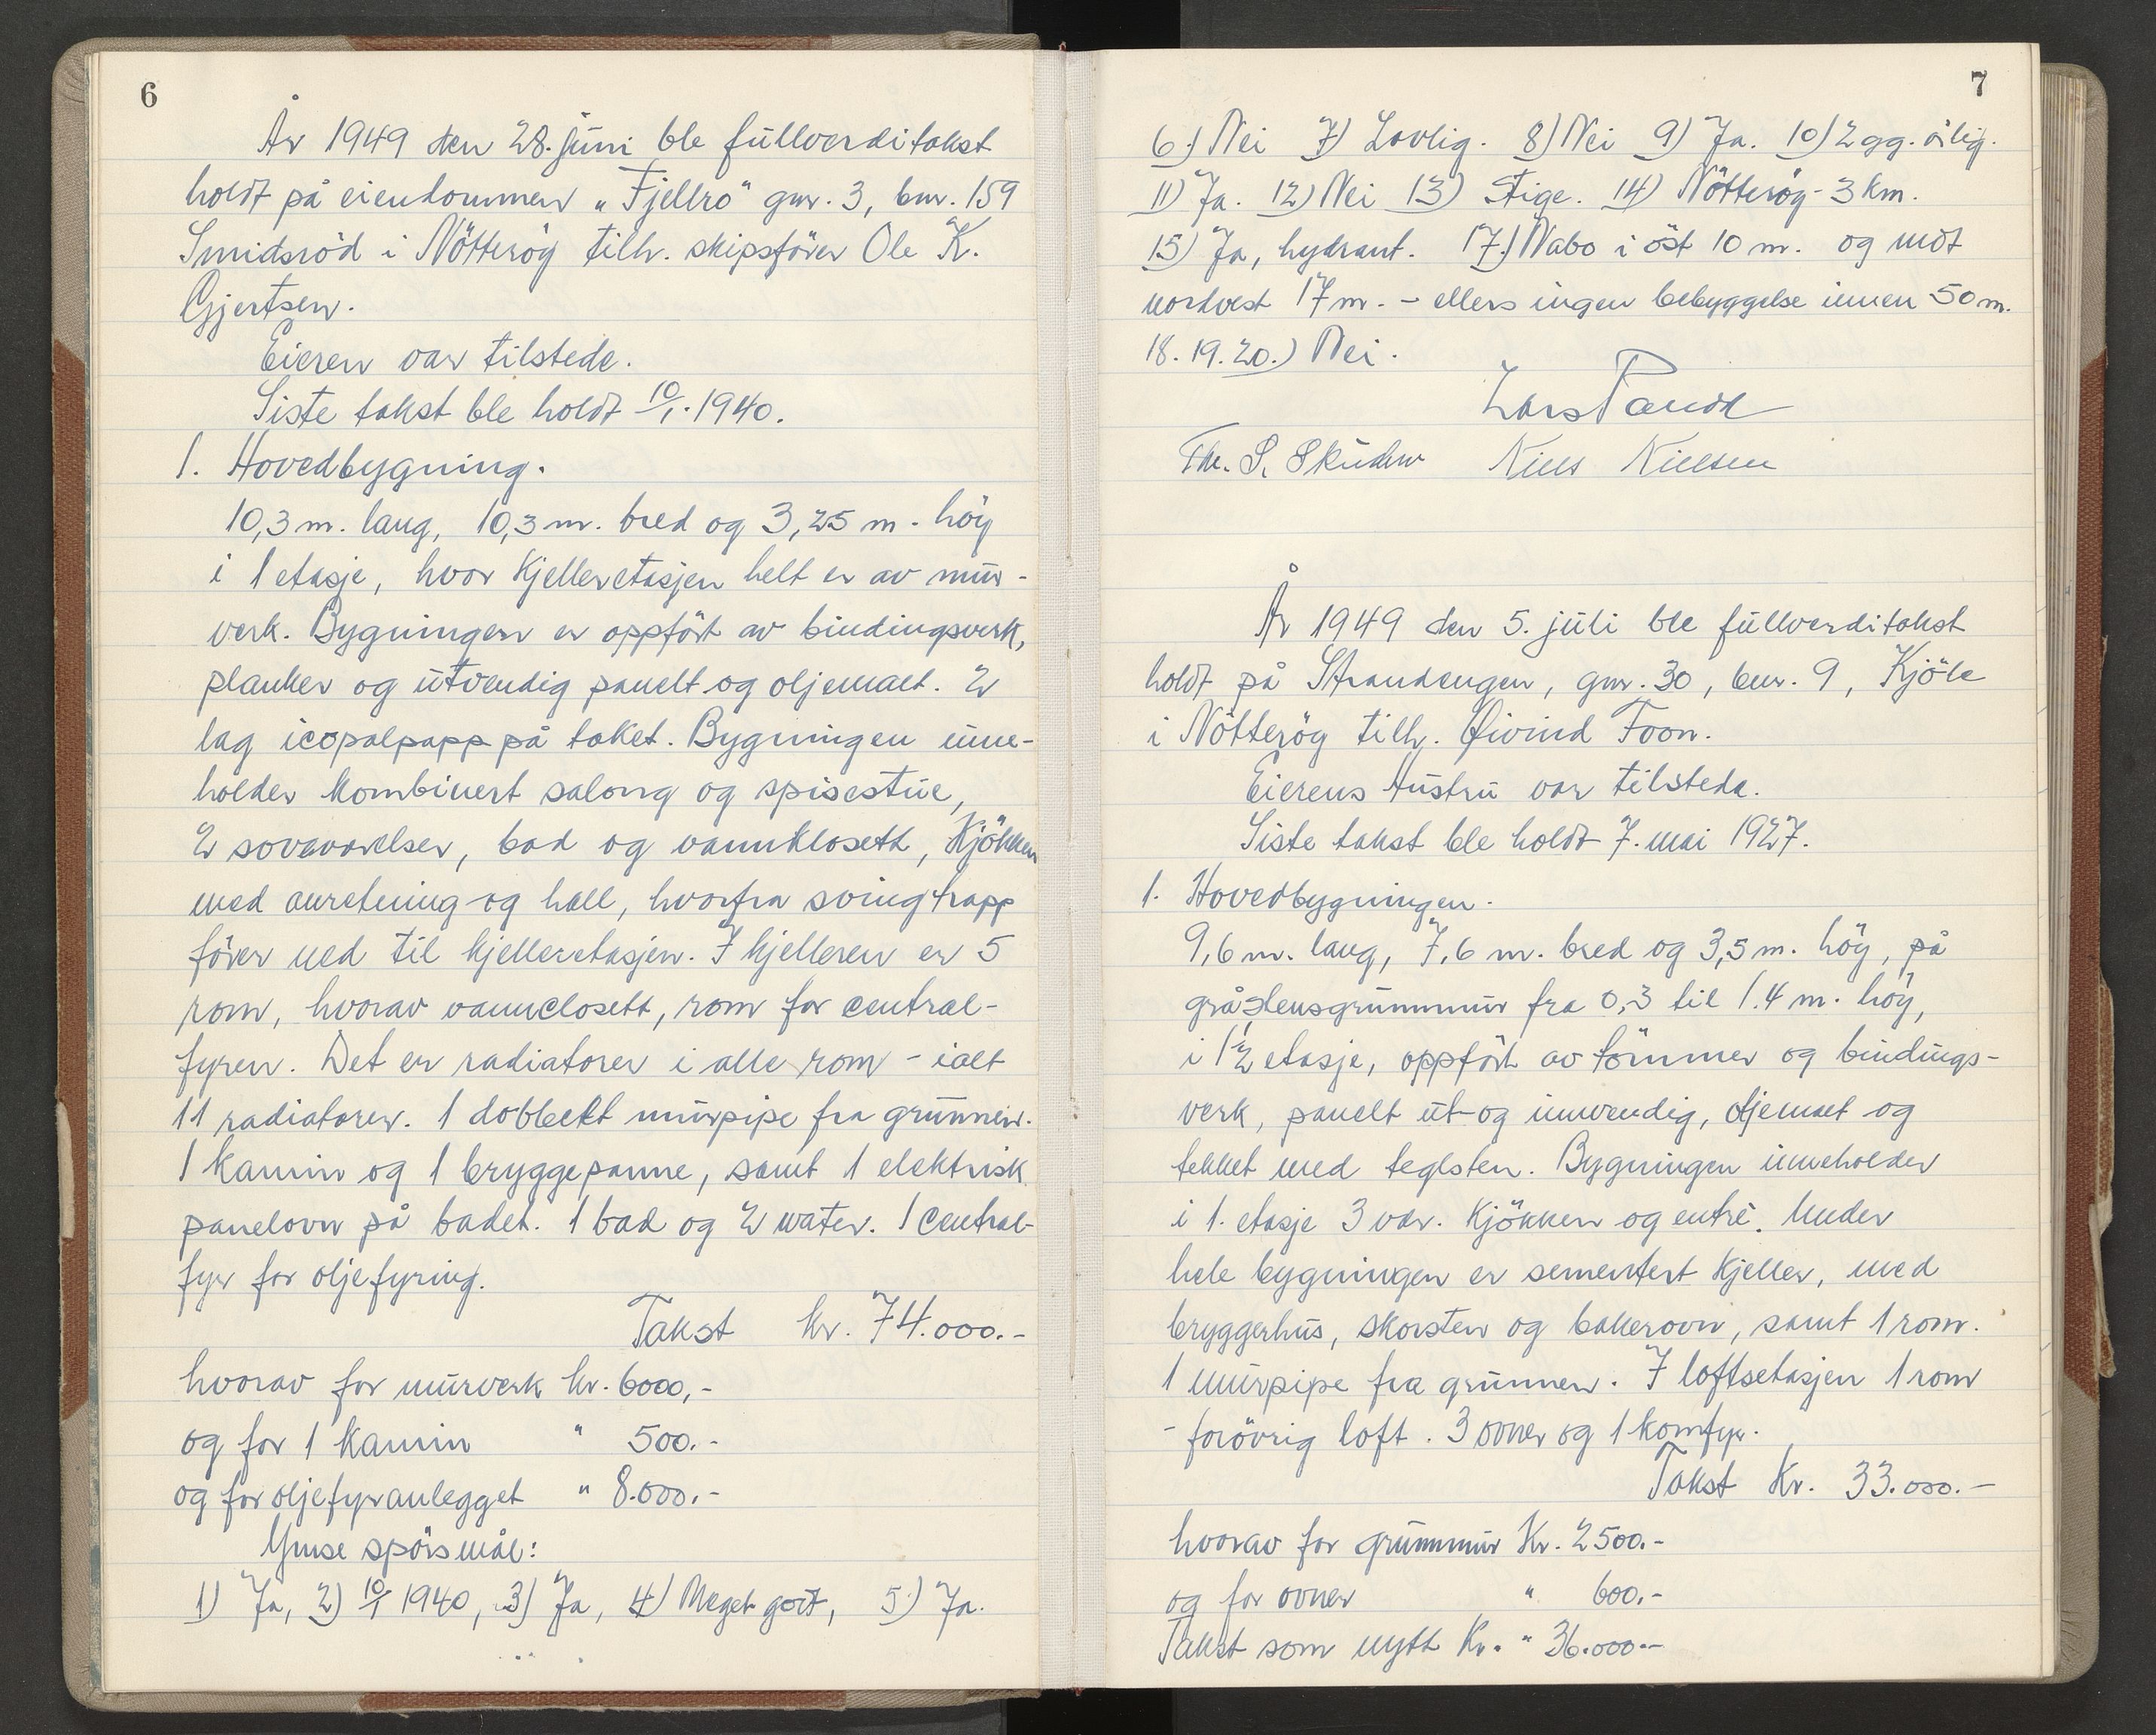 6
År 1949 den 28. juni ble fullverditakst
holdt på eiendommen „Fjellro" gnr. 3, bnr. 159
Smidsröd i Nötteröy tilh. skipsförer Ole K.
Gjertsen.
Eieren var tilstede.
Siste takst ble holdt 10/1. 1940.
1. Hovedbygning.
10,3 m. lang, 10,3 m. bred og 3,25 m. höy
i 1 etasje, hvor kjelleretasjen helt er av mur-
verk. Bygningen er oppfört av bindingsverk,
planker og utvendig panelt og oljemalt. 2
lag icopalpapp på taket. Bygningen inne-
holder kombinert salong og spisestue,
2 soveværelser, bad og vannklosett, kjökken
med anretning og hall, hvorfra svingtrapp
förer ned til kjelleretasjen. I kjelleren er 5
rom, hvorav vannclosett, rom for central-
fyren. Det er radiatorer i alle rom - ialt
11 radiatorer. 1 dobbelt murpipe fra grunnen.
1 kamin og 1 bryggepanne, samt 1 elektrisk
panelovn på badet. 1 bad og 2 water. 1 central-
fyr for oljefyring.
Takst kr. 74.000.-
hvorav for murverk kr. 6000,-
og for 1 kamin " 500.-
og for oljefyranlegget " 8.000.-
Ymse spörsmål:
1) Ja, 2) 10/1 1940, 3) Ja, 4) Meget godt, 5.) Ja.
7
6.) Nei 7) Lovlig. 8) Nei 9) Ja. 10) 2 gg. årlig.
11) Ja. 12) Nei 13) Stige. 14) Nötteröy - 3 km.
15) Ja, hydrant. 17.) Nabo i öst 10 m. og mot
nordvest 17 m. - ellers ingen bebyggelse innen 50 m.
18. 19. 20.) Nei.
Lars
Th. S. Nils Nielsen
År 1949 den 5. juli ble fullverditakst
holdt på Strandengen, gnr. 30, bnr. 9, Kjöle
i Nötteröy tilh. Øivind Foon.
Eierens hustru var tilstede.
Siste takst ble holdt 7. mai 1927.
1. Hovedbygningen.
9,6 m. lang, 7,6 m. bred og 3,5 m. höy, på
gråstensgrunnmur fra 0,3 til 1.4 m. höy,
i 1½ etasje, oppfört av tömmer og bindings-
verk, panelt ut- og innvendig, oljemalt og
tekket med teglsten. Bygningen inneholder
i 1. etasje 3 vær. kjökken og entré. Under
hele bygningen er sementert kjeller, med
bryggerhus, skorsten og bakerovn, samt 1 rom.
1 murpipe fra grunnen. I loftsetasjen 1 rom
- forövrig loft. 3 ovner og 1 komfyr.
Takst Kr. 33.000.-
hvorav for grunnmur Kr. 2500.-
og for ovner " 600.-
Takst som nytt Kr. " 36.000.-